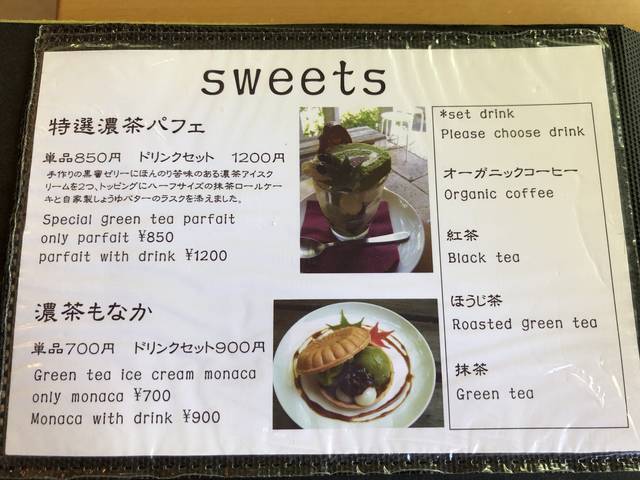 sweets
特選濃茶パフェ
単品850円 ドリンクセット 1200円
手作りの黒蜜ゼリーにほんのり苦味のある濃茶アイスク
リームを2つ、トッピングにハーフサイズの抹茶ロールケー
キと自家製しょうゆバターのラスクを添えました。
Special green tea parfait
only parfait ¥850
parfait with drink ¥1200
濃茶もなか
単品700円 ドリンクセット900円
Green tea ice cream monaca
only monaca ¥700
Monaca with drink ¥900
*set drink
Please choose drink
オーガニックコーヒー
Organic coffee
紅茶
Black tea
ほうじ茶
Roasted green tea
抹茶
Green tea